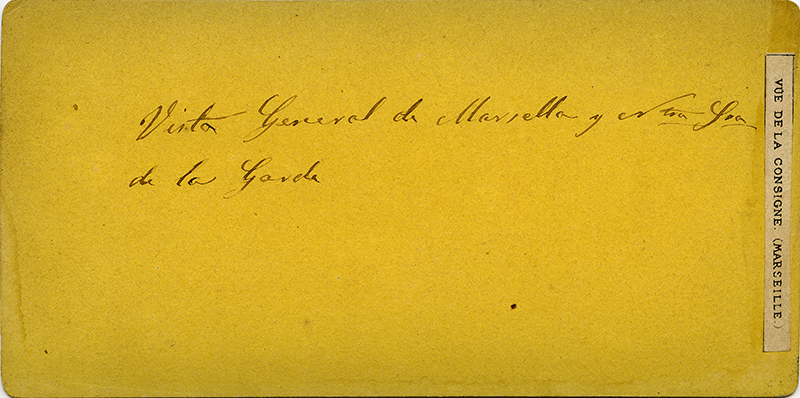 Vista General de Marsella y Ntra Sra
de la Garde
VÜE DE LA CONSIGNE. (MARSEILLE.)